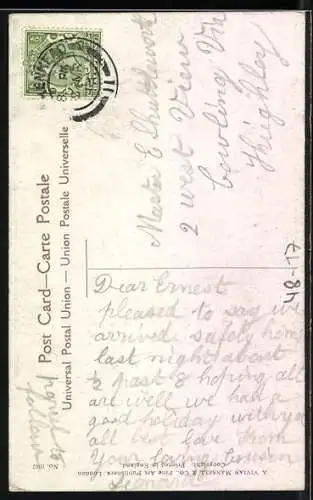 Post Card—Carte Postale
Universal Postal Union — Union Postale Universelle
Master E Shuttleworth
2 west View
Cowling Via
Keighley
48-17
Dear Ernest
pleased to say we
arrived safely home
last night about
½ past 8 hoping all
are well we had a
good holiday with you
all best love from
Your loving cousin
Leonard
A. VIVIAN MANSELL & CO., Fine Art Publishers, London
Copyright. Printed in England